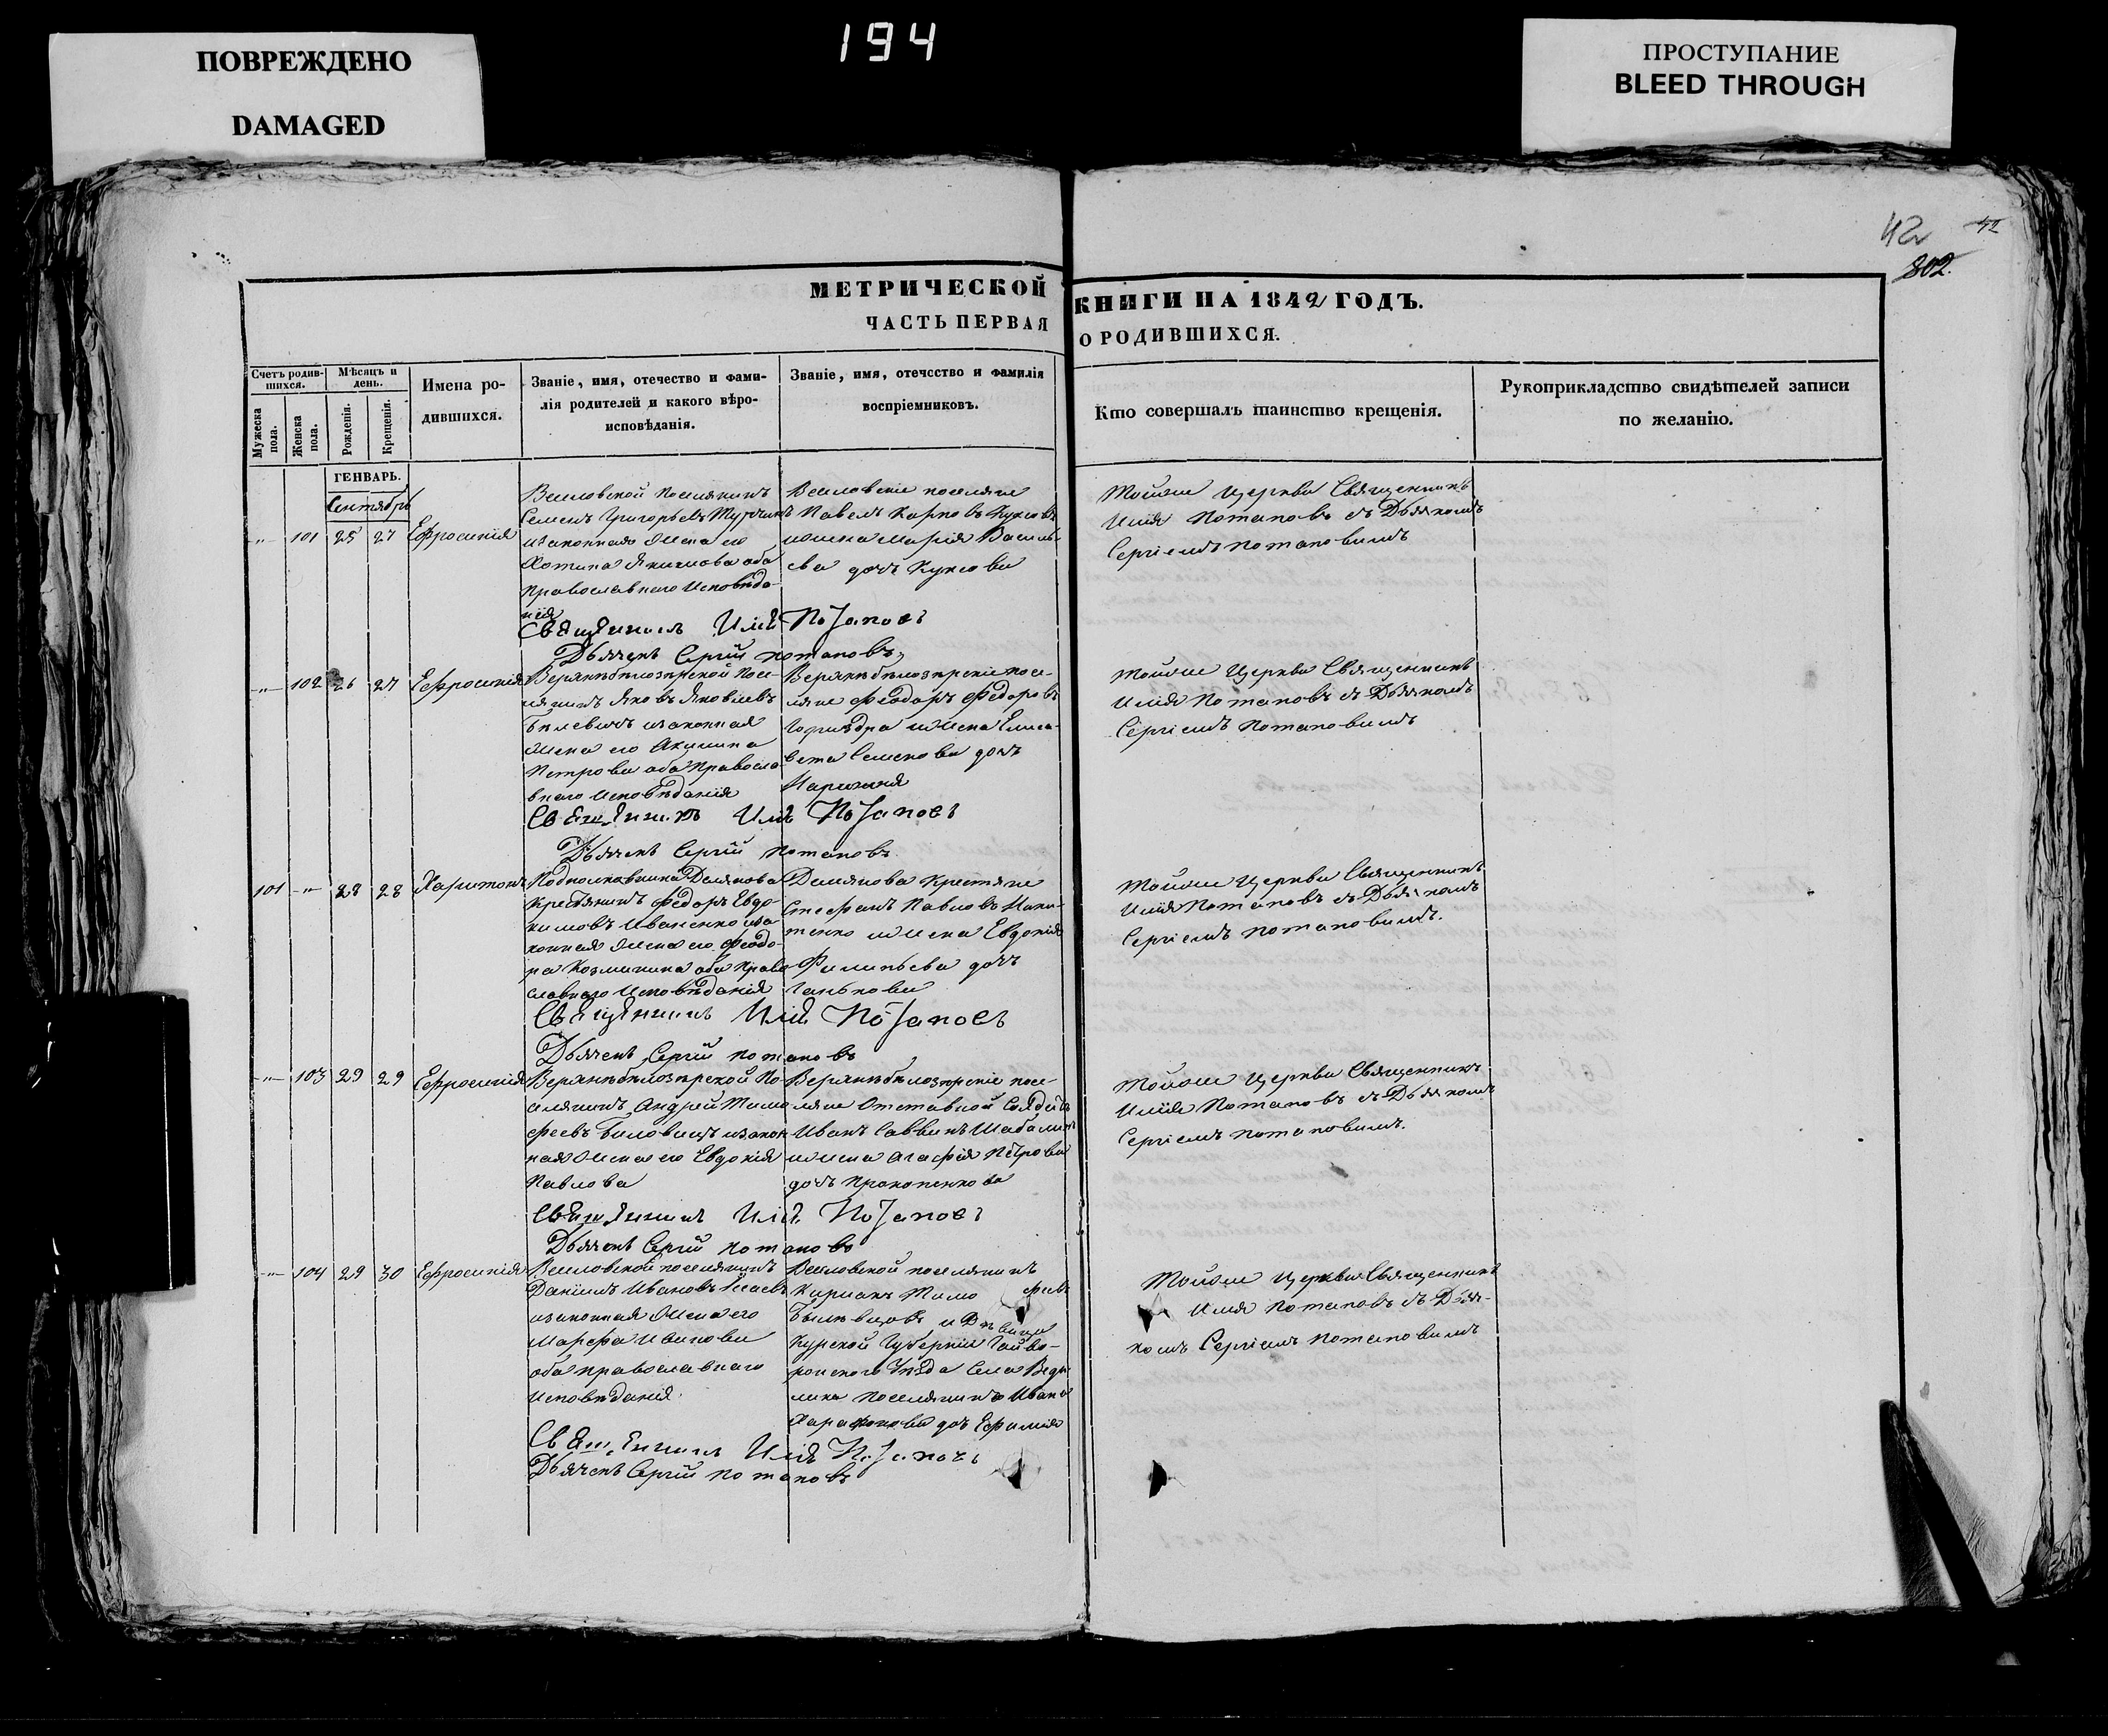 194
ПОВРЕЖДЕНО
DAMAGED
ПРОСТУПАНИЕ
BLEED THROUGH
42
42
802.
МЕТРИЧЕСКОЙ КНИГИ НА 1842 ГОДЪ.
ЧАСТЬ ПЕРВАЯ О РОДИВШИХСЯ.
Счетъ родив-
шихся.
Мужеска пола.
Женска пола.
Мѣсяцъ и
день.
Рожденія.
Крещенія.
Имена ро-
дившихся.
Званіе, имя, отечество и фами-
лія родителей и какого вѣро-
исповѣданія.
Званіе, имя, отечсство и фамилія
воспріемниковъ.
Кто совершалъ таинство крещенія.
Рукоприкладство свидѣтелей записи
по желанію.
ГЕНВАРЬ.
Сентябрь
-"- 101 25 27 Ефросинія
поселянинъ
Семенъ Григорьевъ
изаконная жена его
Якимова оба
православнаго исповѣда-
нія
поселяне
Павелъ Карповъ
ижена Марія Василь-
ева дочь
Тойже Церкви Священникъ
Илія Потаповъ съ Дьячкомъ
Сергіемъ Потаповымъ
Священникъ Илія Потаповъ
Дьячекъ Сергій Потаповъ
-"- 102 26 27 Ефросинія
Верхнебѣлозерской Посе-
лянинъ Яковъ Яковлевъ
изаконная
жена его Акилина
Петрова оба Правосла-
внаго исповѣданія
Верхнебѣлозерскіе посе-
ляне Феодоръ Федоровъ
ижена Елиса-
вета Семенова дочь
Тойже Церкви Священникъ
Илія Потаповъ съ Дьячкомъ
Сергіемъ Потаповымъ
Священникъ Илія Потаповъ
Дьячекъ Сергій Потаповъ
101 -"- 28 28 Харитонъ
Подполковника Демянова
Крестянинъ Федоръ Евдо-
кимовъ Иваненко иза-
конная жена его Феодо-
ра Козминина оба право-
славнаго исповѣданія
Демянова Крестяне
Стефанъ Павловъ Ники-
тенко ижена Евдокія
Филипьева дочь
Ганькова
Тойже Церкви Священникъ
Илія Потаповъ съ Дьячкомъ
Сергіемъ Потаповымъ.
Священникъ Илія Потаповъ
Дьячекъ Сергій Потаповъ
-"- 103 29 29 Ефросинія
Верхнебѣлозерской По-
селянинъ Андрей Тимо-
феевъ изакон-
ная жена его Евдокія
Павлова
Верхнебѣлозерскіе посе-
ляне Отставной Солдатъ
Иванъ Саввинъ
ижена Агафія Петрова
дочь Прокопенкова
Тойже Церкви Священникъ
Илія Потаповъ съ Дьячкомъ
Сергіемъ Потаповымъ.
Священникъ Илія Потаповъ
Дьячекъ Сергій Потаповъ
-"- 104 29 30 Ефросинія
поселянинъ
Даніилъ Ивановъ Исаевъ
изаконная жена его
Марфа Иванова
оба православнаго
исповѣданія.
поселянинъ
Киріакъ Тимо феевъ
и Дѣвица
Курской Губерніи Гайво-
ронскаго Уѣзда Села
поселянина Ивана
дочь Ефимія
Тойже Церкви Священникъ
Илія Потаповъ съ Дьяч-
комъ Сергіемъ Потаповымъ
Священникъ Илія Потаповъ
Дьячекъ Сергій Потаповъ